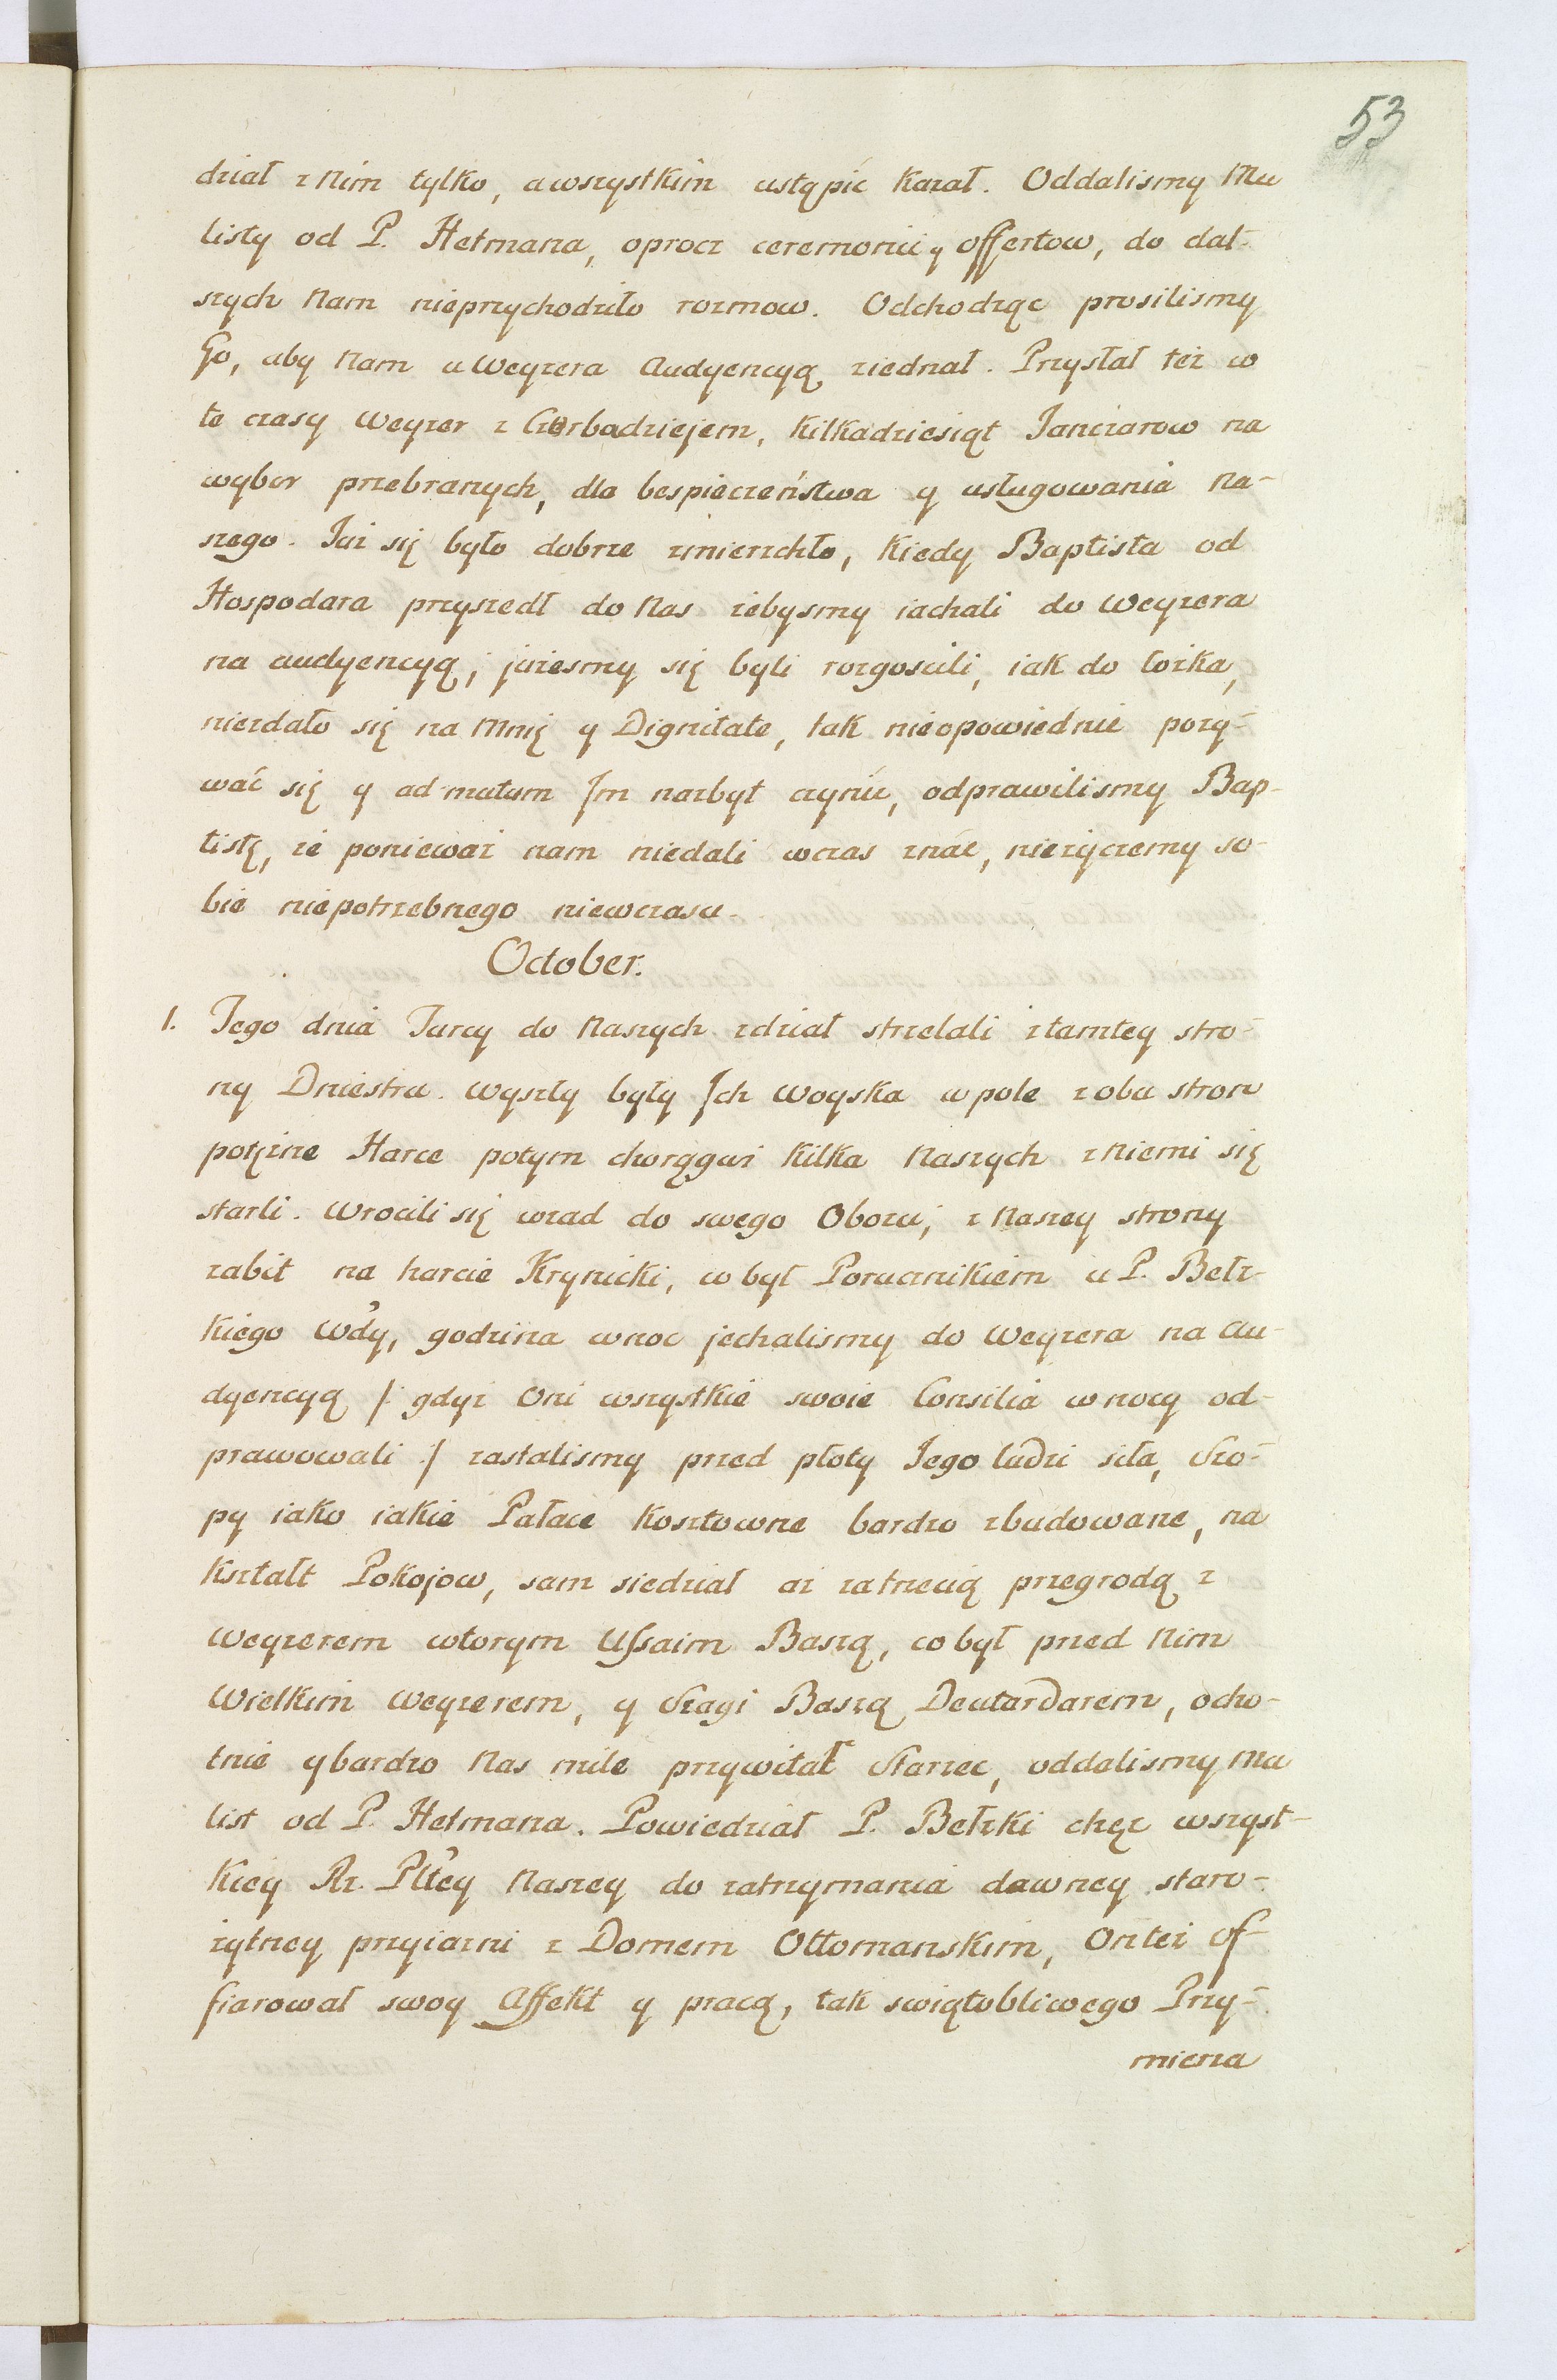 53
dział z Nim tylko, a wszystkim ustąpić kazał. Oddalismy Mu
listy od P. Hetmana, oprocz ceremonii y offertow, do dal-
szych Nam nieprzychodziło rozmow. Odchodząc prosilismy
Go, aby Nam u Weyzera Audyencyą ziednał. Przysłał też w
te czasy Weyzer z Czorbadziejem, kilkadziesiąt Janczarow na
wybor przebranych, dla bespieczeństwa y usługowania Na-
szego. Iuż się było dobrze zmierzchło, kiedy Baptista od
Hospodara przyszedł do Nas żebysmy iachali do Weyzera
na audyencyą; jużesmy się byli rozgoscili, iak do łożka,
niezdało się na Mnię y Dignitate, tak nieopowiednie porý-
wać się y ad nutum Im nazbyt czynić, odprawilismy Bap-
tistę, że ponieważ nam niedali wczas znáć, nieżyczemy so-
bie niepotrzebnego niewczasu.
October.
1. Tego dnia Turcy do Naszych zdział strzelali z tamtey stro-
ny Dniestru. Wyszły były Ich Woyska w pole z obu stron
potężne Harce potym chorągwi kilka Naszych z Niemi się
starli. Wrocili się wzad do swego Obozu; z Naszey strony
zabit na harcie Krynicki, co był Porucznikiem u P. Bełz-
kiego Wdy, godzina w noc jechalismy do Weyzera na Au-
dyencyą /: gdyż Oni wszystkie swoie Consilia w nocy od-
prawowali :/ zastalismy przed płoty Jego ludzi siła, Szo-
py iako iakie Pałace kosztowne bardzo zbudowane, na
kształt Pokojow, sam siedział aż za trzecią przegrodą z
Weyzerem wtorym Ussaim Baszą, co był przed Nim
Wielkim Weyzerem, y Szagi Baszą Deutardarem, ocho-
tnie y bardzo Nas mile przywitał Starzec, oddalismy Mu
list od P. Hetmana. Powiedział P. Bełzki chęć wszyst-
kiey Rz. Pltey Naszey do zatrzymania dawney staro-
żytney przyiazni z Domem Ottomanskim, On też of-
fiarował swoy Affekt y pracą, tak swiątobliwego Przy-
mierza